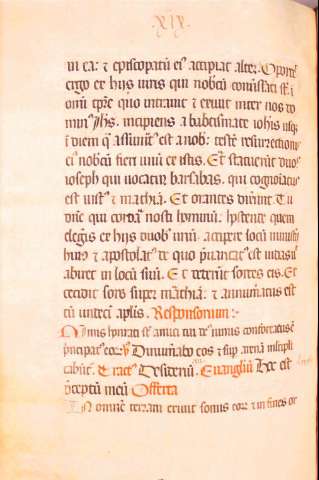 XIX
in ea: et episcopatū eiꝰ accipiat alter. Oportet
ergo ex hijs uiris qui nobcū
om̄i tp̄re quo intrauit et exiuit inter nos do
minꝰ ihs. incipiens a babtismate iohīs usqꝫ
ī diem qͣ est a nob: testē resurrectionis
eiꝰ nobcū fieri unū ex istis. Et statuerūt duos
ioseph qui uocatur barsabas. qui cognoīatꝰ
est iustꝰ et mathiā. Et orantes dixerūt. Tu
dn̄e qui corda nosti hominū. hostende quem
elegeris ex hijs duobꝰ unū. accipere locū ministerij
huiꝰ et apostolatꝰ de quo est iudas ut
abiret in locū suū. Et dederūt sortes eis. Et
cecidit sors super mathiā: et annumeratus est
cū undeci apl̄is. Responsorium:-
Nimis honorati sūt amici tui deꝰ nimis confortatus est
principatꝰ eorꝫ ℣ Dinumerabo eos et sup arenā multipli
cabūt̄. Tractꝰ Desideriū. Euangeliū Hoc est
preceptū meū Offerenda
In omnem terram exiuit sonus eorꝫ et in fines or